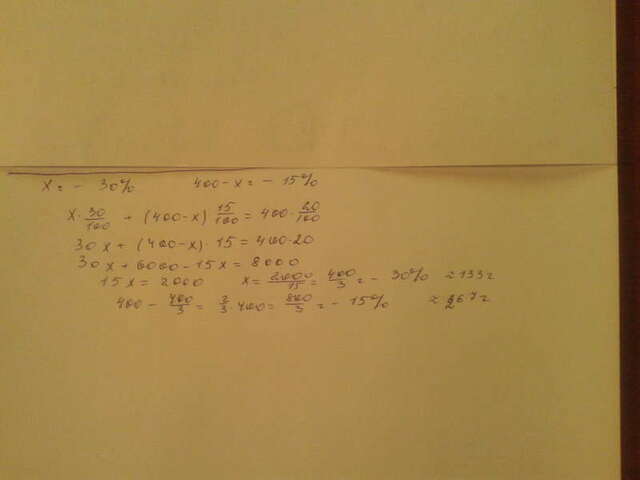 x = - 30% 400-x = - 15%
x · 30/100 + (400-x) 15/100 = 400 · 20/100
30x + (400-x) · 15 = 400·20
30x + 6000 - 15x = 8000
15x = 2000 x = 2000/15 = 400/3 = - 30% ≈ 133 г
400 - 400/3 = 2/3 · 400 = 800/3 = - 15% ≈ 267 г